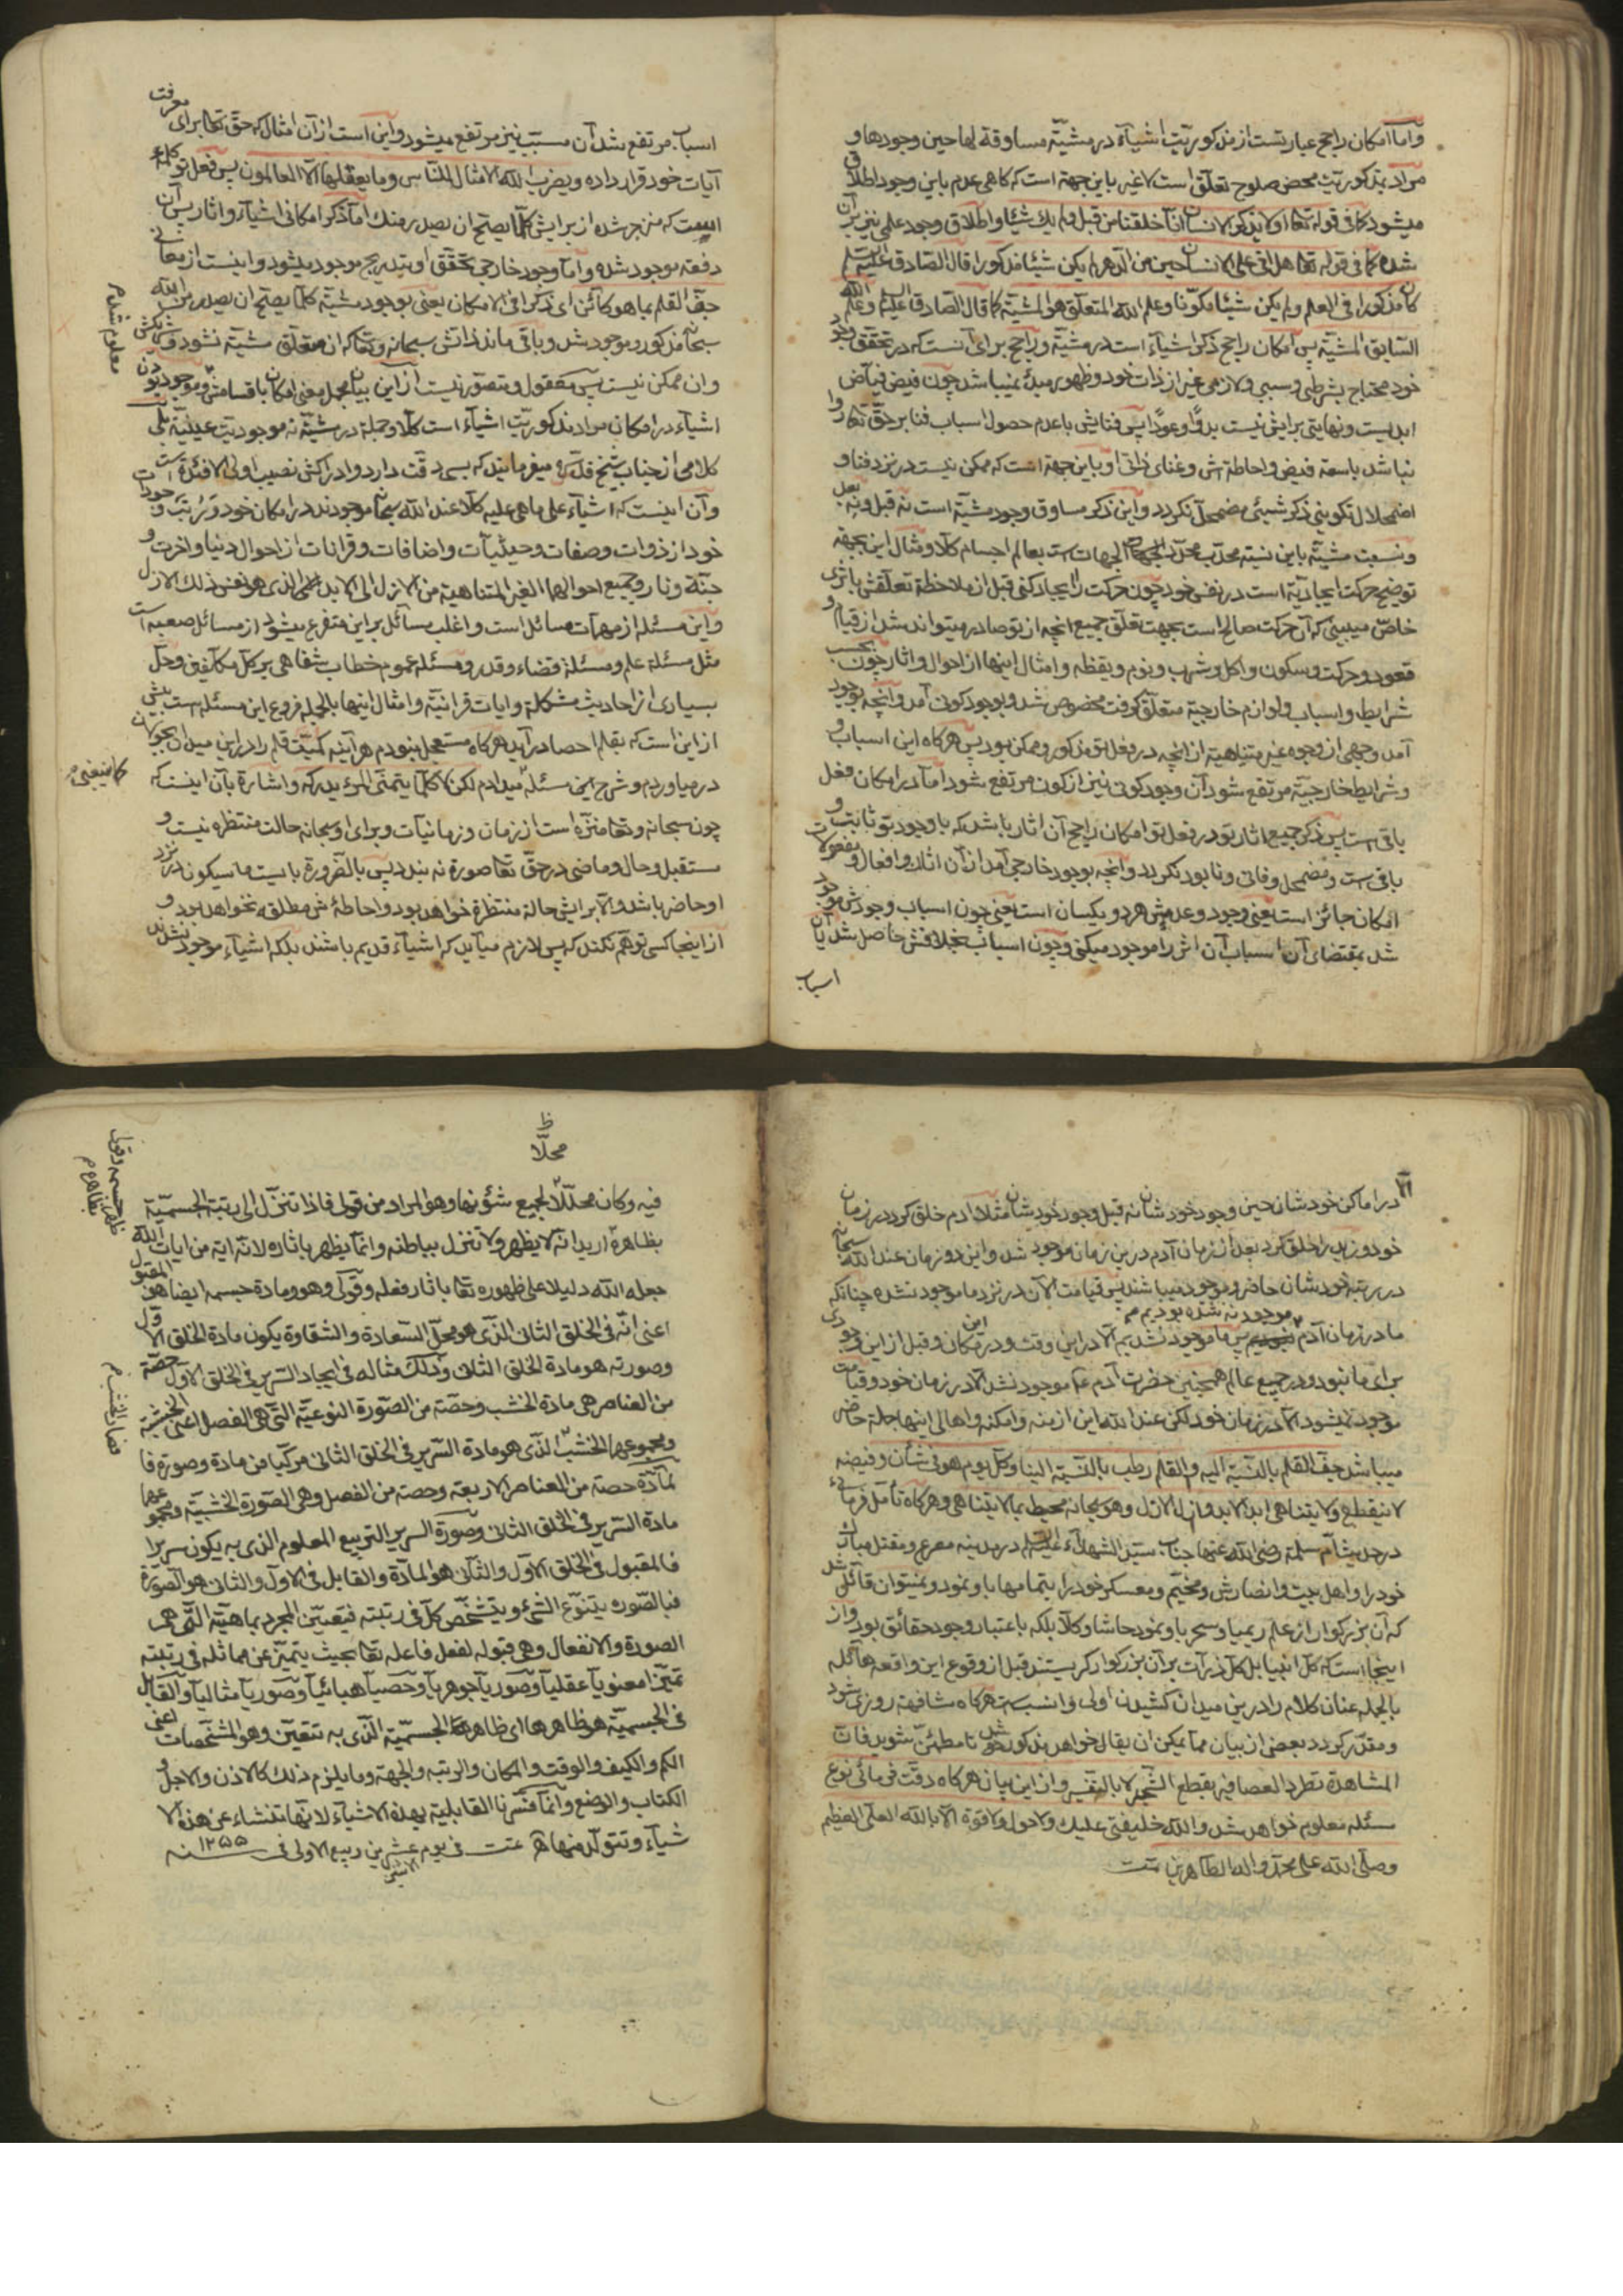 واما امکان راجح عبارتست از مذکوریت اشیآء در مشیّة مساوقة لها حین وجودها و
مراد بمذکوریت محض صلوح تعلّق است لاغیر باین جهة است که کاهی عدم باین وجود اطلاق
میشود کما فی قوله تعا اولا یذکر الانسان انا خلقناه من قبل ولم یك شیئا و اطلاق وجود علمی نیز بر آن
شده کما فی قوله تعا هل اتی علی الانسان حین من الدهر لم یکن شیئا مذکورا قال الصّادق علیه السلم
کان مذکورا فی العلم ولم یکن شیئا مکوّنا وعلم الله المتعلّق هو المشیّة کما قال الصّادق علیه وعلم الله
السّابق المشیّة پس امکان راجح ذکر اشیآء است در مشیّة و راجح برای آنست که در تحقق وجود
خود محتاج بشرطی و سببی و لازمی غیر از ذات خود و ظهور مبدأ نمیباشد چون فیض فیّاض
ابدیست و نهایتی برایش نیست بدوًا و عودًا پس فنایش با عدم حصول اسباب فنا بر حقّ تعا روا
نباشد با سعة فیض و احاطه اش و غنای ذاتی او باین جهة است که ممکن نیست در نزد فنا و
اضمحلال تکوینی ذکر شیئی مضمحل نکردد و این ذکر مساوق وجود مشیّة است نه قبل و نه بعد
و نسبت مشیّة باین نسبة محدّب محدّد الجهات است بعالم اجسام کلّا و مثال این بجهة
توضیح حرکت ایجادیّة است در نفس خود چون حرکت را ایجاد کنی قبل از ملاحظة تعلّقش باثری
خاصّ میبینی که آن حرکت صالح است بجهت تعلّق جمیع انچه از تو صادر میتواند شد از قیام و
قعود و حرکت و سکون و اکل و شرب و نوم و یقظه و امثال اینها از احوال و اثار چون بحسب
شرایط و اسباب و لوازم خارجیّة متعلّق کرفت مخصوص شد و بوجود کونی آمد و انچه بوجود
آمد وجهی از وجوه غیر متناهیة از انچه در فعل تو مذکور و ممکن بود پس هرکاه این اسباب و
و شرایط خارجیّة مرتفع شود آن وجود کونی نیز از کون مرتفع شود اما در امکان فعل
باقی است پس ذکر جمیع اثار تو در فعل تو امکان راجح آن اثار باشد که با وجود تو ثابت و
باقی است و مضمحل و فانی و نابود نکردد و انچه بوجود خارجی آمد از آن اثار و افعال و مفعولات
امکان جائز است یعنی وجود و عدمش هر دو یکسان است یعنی چون اسباب وجودش موجود
شد بمقتضای آن اسباب آن اثر را موجود میکنی و چون اسباب بخلافش حاصل شد یا آن
اسباب
اسباب مرتفع شد آن مسبّب نیز مرتفع میشود و این است از آن امثال که حقّ تعا برای معرفت
آیات خود قرار داده و یضرب الله الامثال للنّاس وما یعقلها الّا العالمون پس فعل تو کلمه
ایست که منزجر شده از برایش کلّما یصحّ ان یصدر منك اما ذکر امکانی اشیآء و اثار پس آن
دفعة موجود شده و اما وجود خارجی تحقّق او بتدریج موجود میشود و اینست از معانی
جفّ القلم بما هو کائن ای ذکرا فی الامکان یعنی بوجود مشیّة کلّما یصحّ ان یصدر من الله
سبحانه مذکور و موجود شد و باقی ماند ذاتش سبحانه و تعا که از متعلّق مشیّة نشود و شریکش
معلوم شد م
وان ممکن نیست پس معقول و متصوّر نیست از این بیان مجمل معنی امکان باقسامش و موجود بودن
اشیآء در امکان مراد مذکوریت اشیآء است کلّا و جملة در مشیّة نه موجودیّت عینیّة بلی
کلامی از جناب شیخ قدّه میفرمایند که بسی دقّت دارد و ادراکش نصیب اولی الافئدة است
و آن اینست که اشیآء علی ماهی علیه کلّا عند الله سبحانه موجودند در امکان خود و رتبت وجودات
خود از ذوات و صفات و حیثیّات و اضافات و قرانات از احوال دنیا و اخرت و
جنّة و نار و جمیع احوالهما الغیر المتناهیة من الازل الی الابد الذی هو نفس ذلك الازل
و این مسئله از مهمّات مسائل است و اغلب مسائل بر این متفرع میشود از مسائل صعبه است
مثل مسئلة علم و مسئلة قضاء و قدر و مسئلة عموم خطاب شفاهی بر کلّ مکلّفین و حلّ
بسیاری از احادیث مشکلة و ایات قرانیّة و امثال اینها بالجمله فروع این مسئله است بیش
از این است که بقلم احصا در آید هرکاه مستعجل نبودم هرآینه کمیّت قلم را در این میدان بجولان
در میاوردم و شرح این مسئله میدادم لکن ما کلّما یتمنّی المرء یدرکه و اشارة بآن اینست که
کما ینبغی م
چون سبحانه و تعا منزّه است از زمان و زمانیات و برای او سبحانه حالت منتظره نیست و
مستقبل و حال و ماضی در حقّ تعا صورة نه بندد پس بالضّرورة بایست ما سیکون در نزد
او حاضر باشد والّا برایش حالة منتظرة خواهد بود و احاطه ش مطلقه نخواهد بود و
از اینجا کسی توهّم نکند که پس لازم میآید که اشیآء قدیم باشند بلکه اشیآء موجود نشدند
الّا
در اماکن خودشان حین وجود خودشان نه قبل وجود خودشان مثلا ادم خلق کرد در زمان
خود و زید را خلق کرد بعد از زمان آدم در ین زمان موجود شد و این دو زمان عند الله سبحانه
در رتبة خودشان حاضر و موجود میباشند پس قیامت الآن در نزد ما موجود نشده چنانکه
موجود نه شده بودیم م
ما در زمان آدم پس ما موجود نشدیم الّا در این وقت و در این مکان و قبل از این وجودی
برای ما نبود در جمیع عالم همچنین حضرت آدم ع موجود نشد الّا در زمان خود و قیامت
موجود نمیشود الّا در زمان خود لکن عند الله این ازمنه و امکنه و اهالی اینها جملة حاضر
میباشد جفّ القلم بالنّسبة الیه و القلم رطب بالنّسبة الینا و کلّ یوم هو فی شأن و فیضه
لا ینقطع ولا یتناهی ابد الابد و ازل الازل وهو سبحانه محیط بما لا یتناهی و هرکاه تامّل فرمائی
در حدیث امّ سلمة رضی الله عنها جناب سیّد الشهدآء علیه السلم در مدینه مصرع و مقتل مبارك
خود را و اهل بیت و انصارش و مخیّم و معسکر خود را بتمامها باو نمود و نمیتوان قائل شد
که آن بزرکوار از علم ریمیا و سحر باو نمود حاشا و کلّا بلکه باعتبار وجود حقائق بود و از
اینجا است که کلّ انبیا بل کلّ ذرّات بر آن بزرکوار کریستند قبل از وقوع این واقعة هآئله
بالجمله عنان کلام را در ین میدان کشیدن اولی و انسب است هرکاه مشافهة روزی شود
و مقدّر کردد بعضی از بیان مما یمکن ان یقال خواهد مذکور شد تا مطمئنّ شوید فانّ
المشاهدة تطرد العصافیر بقطع الشجر لا بالتنفیر و از این بیان هرکاه دقّت فرمائی نوع
مسئله معلوم خواهد شد والله خلیفتی علیك ولا حول ولا قوّة الّا بالله العلیّ العظیم
وصلّی الله علی محمّد واله الطّاهرین تمت
ظ
محلّا
فیه وکان محلّلا لجمیع شؤنها وهو المراد من قولی فاذا تنزّل الی رتبة الجسمیّة
ظاهر جسمه وقول
بظاهره م
بظاهره ارید انه لا یظهر ولا تنزل بباطنه وانّما یظهر باثاره لانّه ایة من ایات الله
جعله الله دلیلا علی ظهوره تعا باثار فعله وقولی وهو ومادة جسمه ایضا هو المقبول
اعنی انّه فی الخلق الثانی الّذی هو محلّ السّعادة والشّقاوة یکون مادة الخلق الاوّل
وصورته هو مادة الخلق الثانی وذلك مثاله فی ایجاد السّریر فی الخلق الاوّل حصّة
من العناصر هی مادة الخشب وحصّة من الصّورة النوعیّة الّتی هی الفصل اعنی الخشبیّة
ومجموعها الخشب الّذی هو مادة السّریر فی الخلق الثانی مرکّبا من مادة وصورة فا
لمآدّة حصة من العناصر الاربعة وحصة من الفصل وهی الصّورة الخشبیّة ومجموعهما
مادة السّریر فی الخلق الثانی وصورة السریر التربیع المعلوم الذی به یکون سریرا
فالمقبول فی الخلق الاوّل والثانی هو المادّة والقابل فی الاوّل والثانی هو الصّورة
فبالصّورة یتنوّع الشیء ویتشخّص کلّ فی رتبته فیتعیّن المجرد بماهیّته الّتی هی
الصورة والانفعال وهی قبوله لفعل فاعله تعا بحیث یتمیّز عن مماثله فی رتبته
تمیّزا معنویّا وعقلیّا وصوریّا جوهریّا وحصیّا هبائیّا وصوریّا مثالیّا والقابل
فی الجسمیّة هو ظاهرها ای ظاهر الجسمیّة الّذی به تتعیّن وهو المشخّصات اعنی
الکم والکیف والوقت والمکان والرتبه والجهة وما یلزم ذلك کالاذن والاجل و
الکتاب والوضع وانّما فسّرنا القابلیّة بهذه الاشیآء لانّها تنشاء عن هذه الا
شیآء وتتولّد منها تمت فی یوم عشرین ربیع الاولی فی سنه ۱۲۵۵